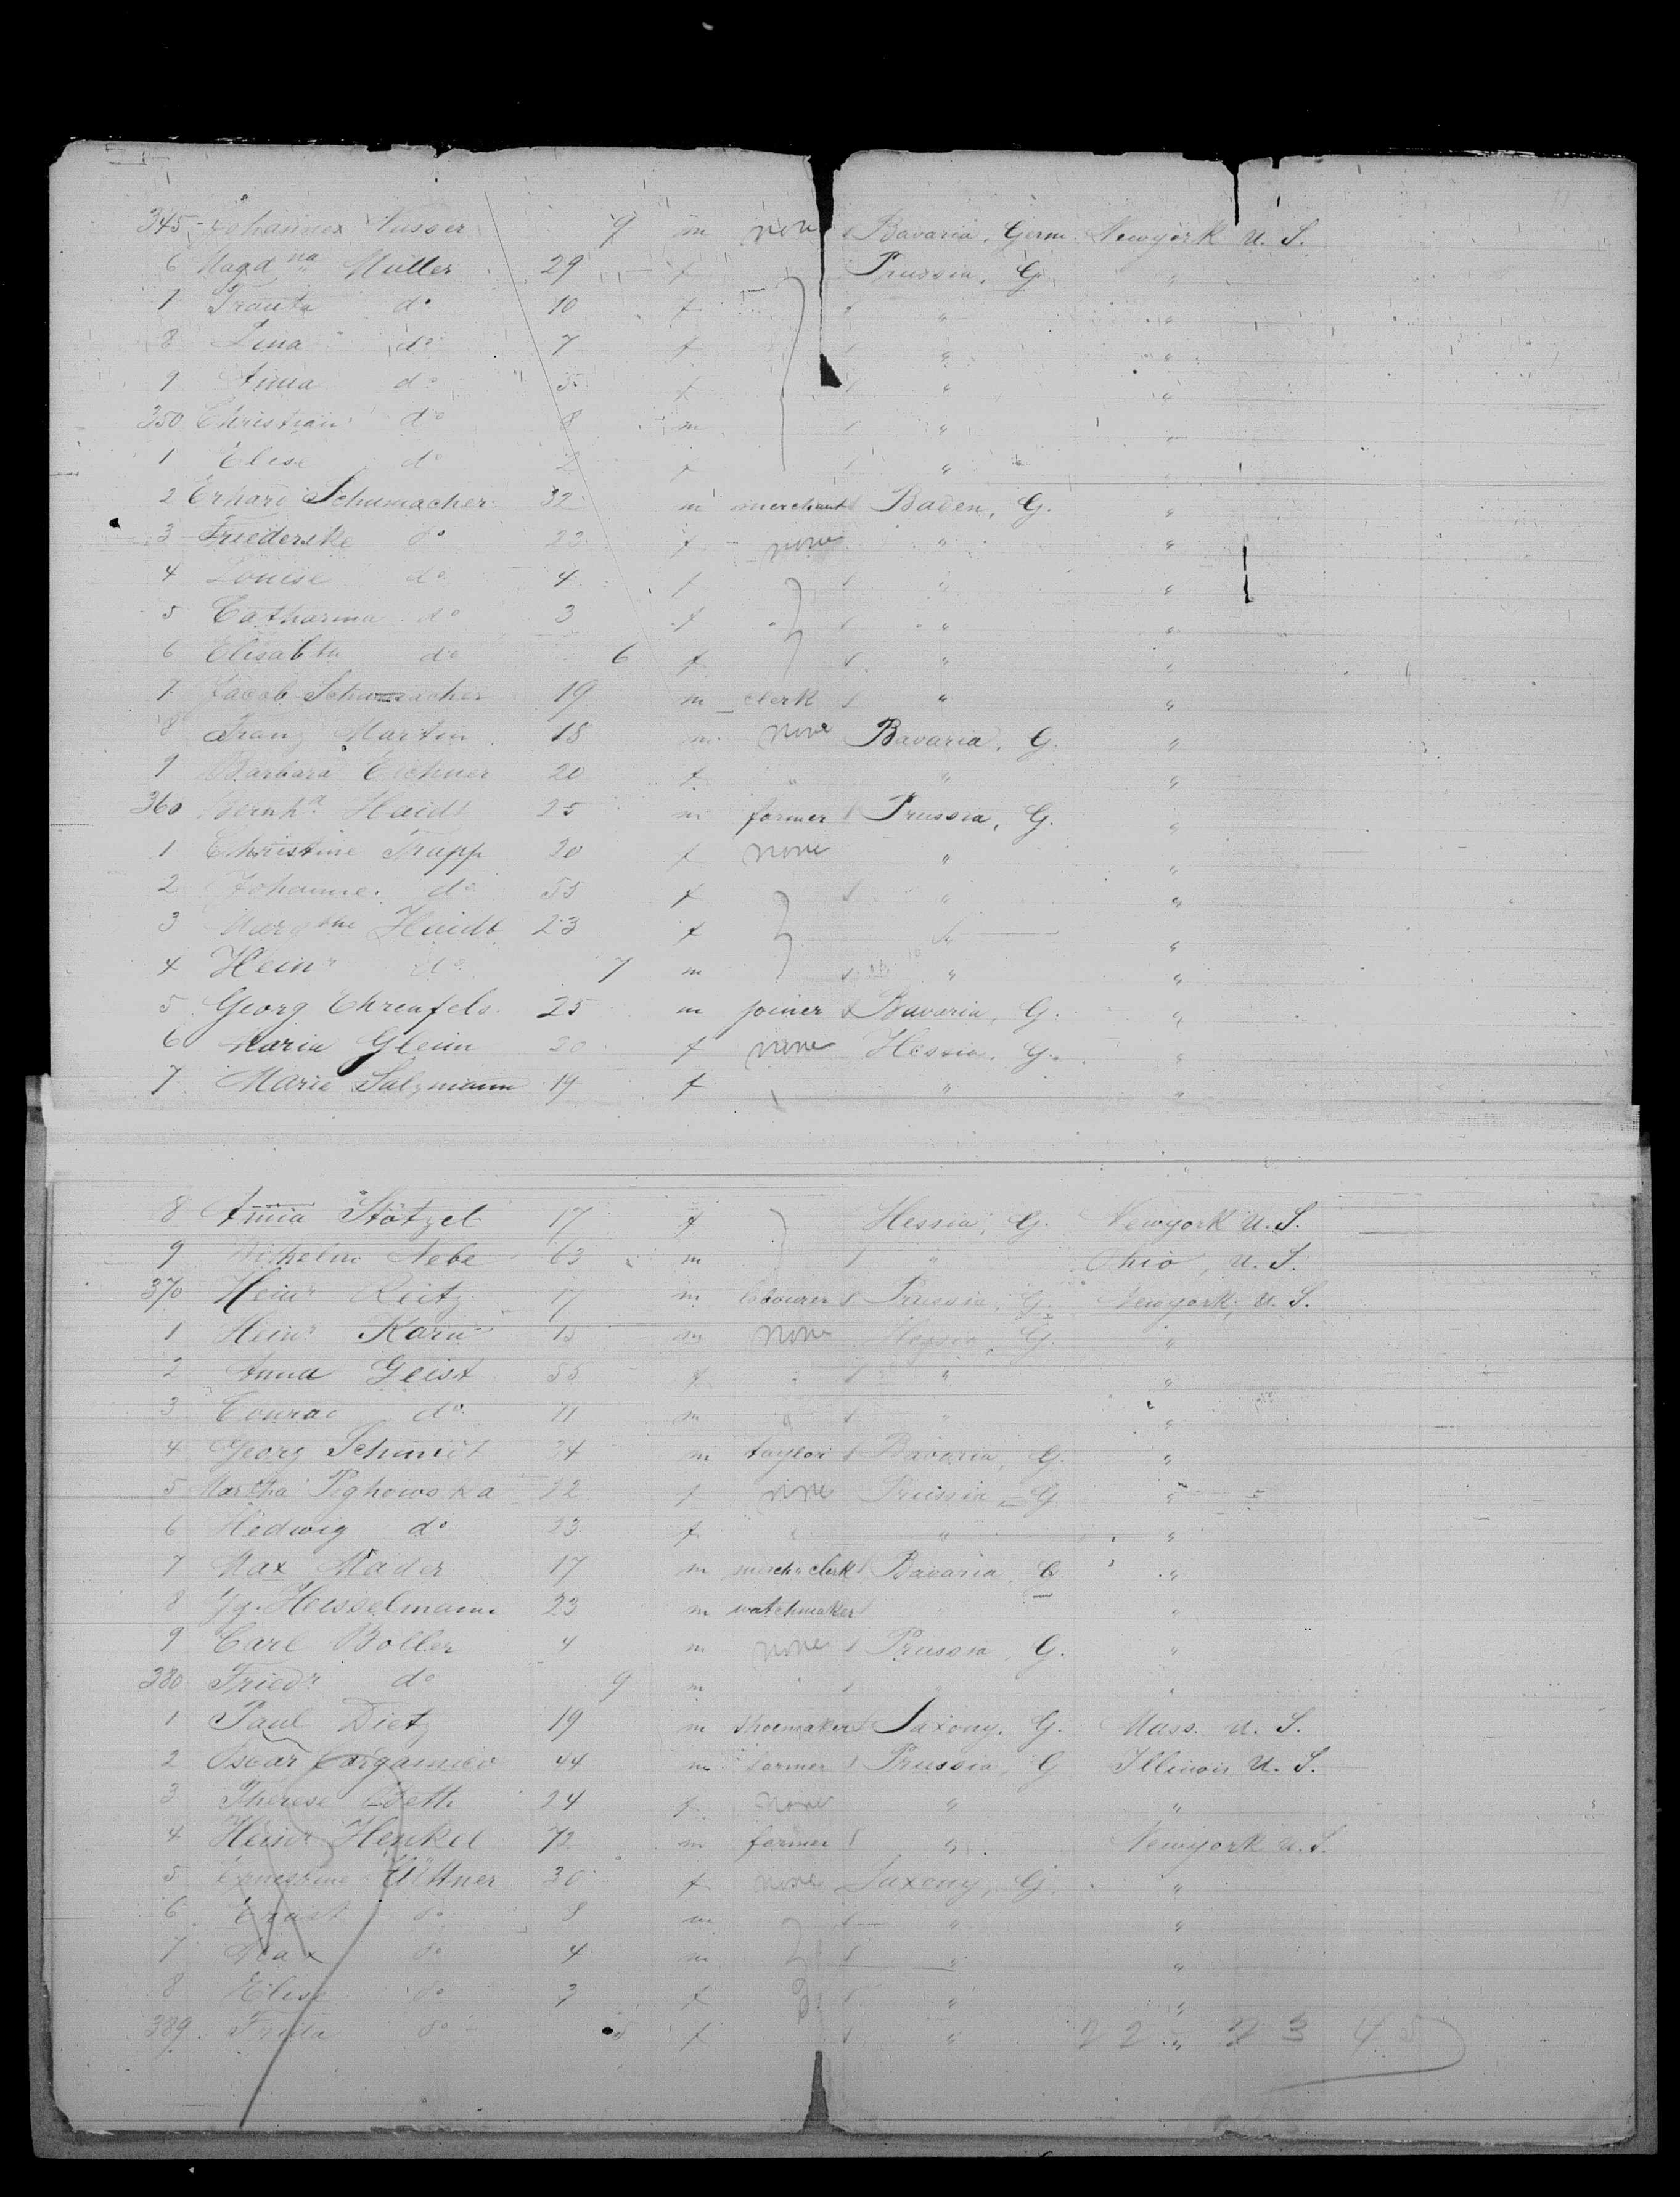 345 Johannes Nusser 9 m none Bavaria, Germ. Newyork U. S.
6 Magdna Müller 29 f Prussia, G. "
7 do 10 f " "
8 Lina do 7 f " "
9 Anna do 5 f " "
350 Christian do 8 m " "
1 Elise do 2 f " "
2 Erhard Schumacher 32 m merchant Baden, G. "
3 Friederike do 22 f none " "
4 Louise do 4 f " "
5 Catharina do 3 f " "
6 Elisabth do 6 f " "
7 Jacob Schumacher 19 m clerk " "
8 Franz Martin 18 m none Bavaria, G. "
9 Barbara Eichner 20 f " " "
360 Bernhd Haidt 25 m farmer Prussia, G. "
1 Christine Trapp 20 f none " "
2 Johanne do 55 f " "
3 Margthe Haidt 23 f " "
4 Heinr do 7 m " "
5 Georg Ehrenfels 25 m joiner Bavaria, G. "
6 Maria Gleim 20 f none Hessia, G. "
7 Marie Salzmann 19 f " "
8 Anna Stötzel 17 f Hessia, G. Newyork U. S.
9 Wilhelm Nebe 63 m " Ohio, U. S.
370 Heinr Reitz 17 m labourer Prussia, G. Newyork, U. S.
1 Heinr 15 m none Hessia, G. "
2 Anna Geist 55 f " " "
3 Conrad do 11 m " " "
4 Georg Schmidt 34 m taylor Bavaria, G. "
5 Martha 22 f none Prussia, G. "
6 Hedwig do 23 f " " "
7 Max Mader 17 m merch. clerk Bavaria, G. "
8 Gg. Hesselmann 23 m watchmaker " "
9 Carl Boller 4 m none Prussia, G. "
380 Friedr do 9 m " " "
1 Paul Dietz 19 m shoemaker Saxony, G. Mass. U. S.
2 Oscar 44 m farmer Prussia, G. Illinois U. S.
3 Therese 24 f none " "
4 Heinr Henkel 72 m farmer " Newyork U. S.
5 Ernestine Üttner 30 f none Saxony, G. "
6 Ernst do 8 m " "
7 Max do 4 m " "
8 Elise do 3 f " "
389. Frida do 5 f " "